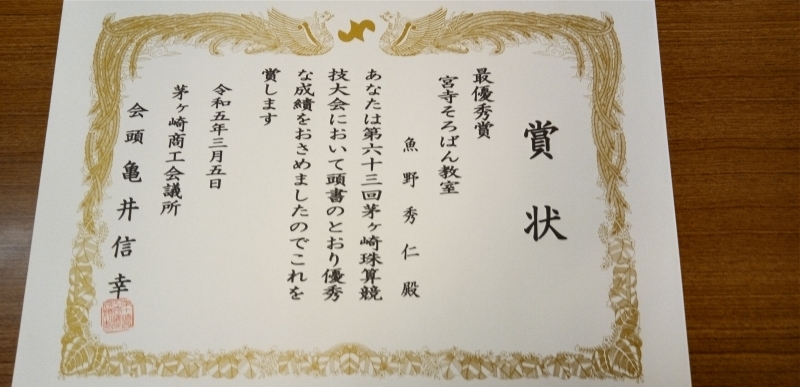 賞状
最優秀賞
宮寺そろばん教室
魚野秀仁殿
あなたは第六十三回茅ヶ崎珠算競
技大会において頭書のとおり優秀
な成績をおさめましたのでこれを
賞します
令和五年三月五日
茅ヶ崎商工会議所
会頭亀井信幸